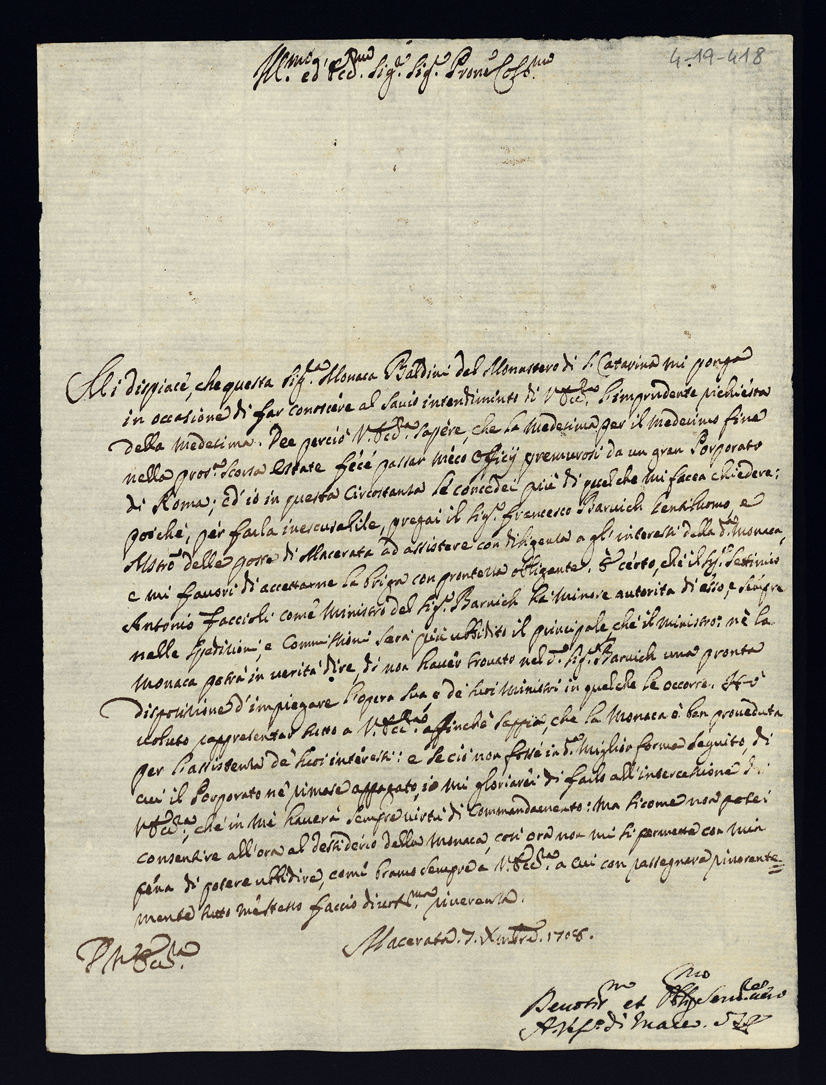 4-19-418
Ill.mo ed Ecc.mo Sig.r Sig.r Prone Col.mo
Mi dispiace, che questa Sig.ra Monaca Baldini del Monastero di S. Catarina mi ponga
in occasione di far conoscere al savio intendimento di V. Ecc.za l'imprudente richiesta
della medesima. Dee perciò V. Ecc.za sapere, che la medesima per il medesimo fine
nella pros.a scorsa estate fece passar meco officij premurosi da un gran Porporato
di Roma; ed io in questa circostanza le concedei più di quel che mi facea chiedere;
poiche, per farla inescusabile, pregai il Sig.r Francesco Barwich Gentiluomo, e
Mstro delle poste di Macerata ad assistere con diligenza a gl'interessi della d.a Monaca,
e mi favorì di accettarne la briga con prontezza obligante. È certo, che il Sig.r Settimio
Antonio Faccioli come Ministro del Sig.r Barwich ha minore autorità di esso, e sempre
nelle spedizioni, e Commissioni sarà più ubbidito il principale, che il ministro: nè la
Monaca potrà in verità dire, di non haver trovato nel d.o Sig.r Barwich una pronta
disposizione d'impiegare l'opera sua e de suoi Ministri in quel che le occorre. Hò
voluto rappresentar tutto a V. Ecc.za affinchè sappia, che la Monaca è ben proveduta
per l'assistenza de suoi interessi: e se ciò non fosse in d.a miglior forma seguito, di
cui il Porporato nè rimase appagato, io mi gloriarei di farlo all'intercessione di
V. Ecc.za, che in me haverà sempre virtù di Commandamento: ma sicome non potei
consentire all'ora al desiderio della Monaca, così ora non mi si permette con mia
pena di potere ubbidire, come bramo sempre a V. Ecc.za a cui con rassegnare riverente=
mente tutto me stesso faccio divot.ma riverenza.
Macerata. 7. Xmbre. 1708.
D. V. Ecc.za
Devotis.mo et Obl.mo Serv.re vero
A. Vesc.o di Mace.